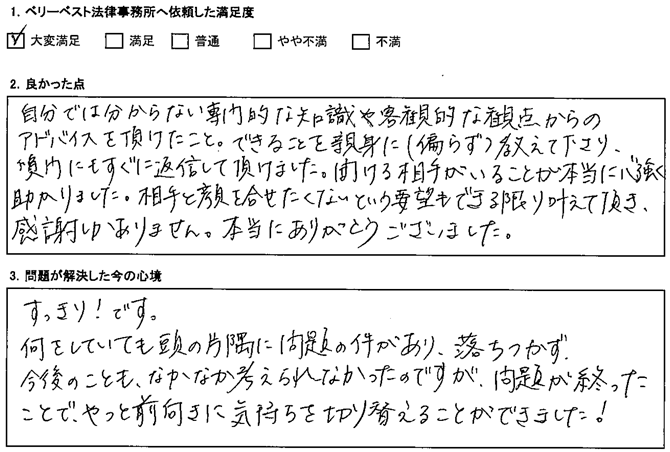 1. ベリーベスト法律事務所へ依頼した満足度
大変満足 満足 普通 やや不満 不満
2. 良かった点
自分では分からない専門的な知識や客観的な観点からの
アドバイスを頂けたこと。できることを親身に(偏らず)教えて下さり、
にもすぐに返信して頂けました。聞ける相手がいることが本当に心強く
助かりました。相手と顔を合せたくないという要望もできる限り叶えて頂き、
感謝しかありません。本当にありがとうございました。
3. 問題が解決した今の心境
すっきり!です。
何をしていても頭の片隅に問題の件があり、落ちつかず、
今後のことも、なかなか考えられなかったのですが、問題が終った
ことで、やっと前向きに気持ちを切り替えることができました!